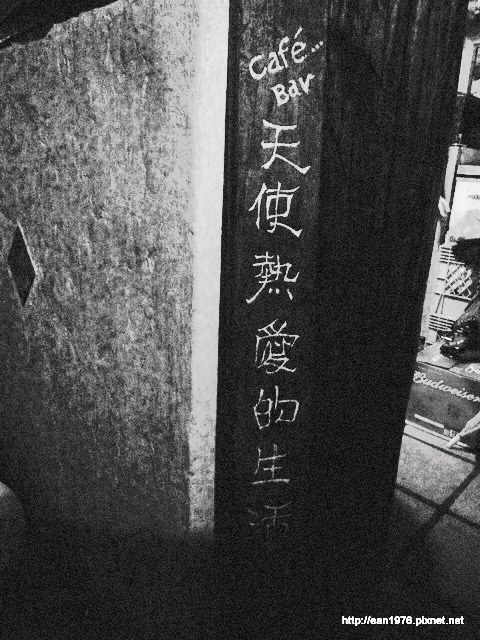 Café...
Bar
天使熱愛的生活
Budweiser
http://ean1976.pixnet.net